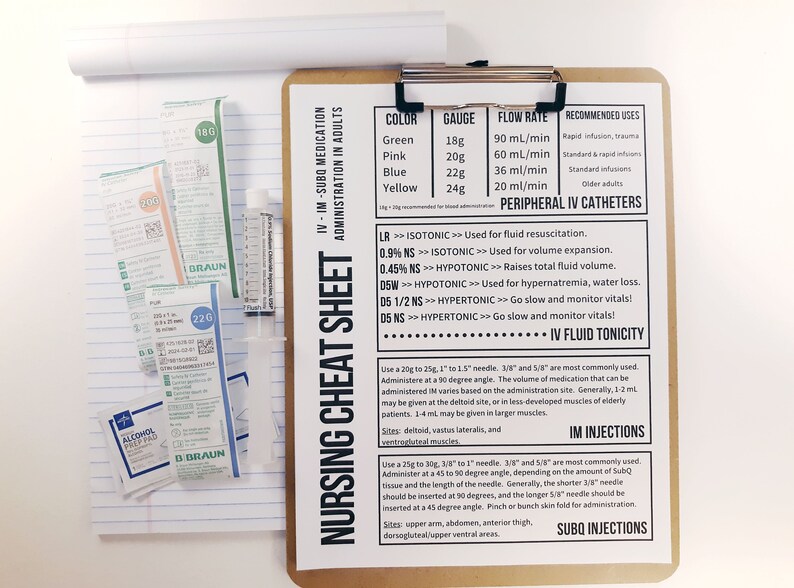 NURSING CHEAT SHEET
IV - IM -SUBQ MEDICATION
ADMINISTRATION IN ADULTS
COLOR GAUGE FLOW RATE RECOMMENDED USES
Green 18g 90 mL/min Rapid infusion, trauma
Pink 20g 60 mL/min Standard & rapid infsions
Blue 22g 36 ml/min Standard infusions
Yellow 24g 20 ml/min Older adults
18g + 20g recommended for blood administration PERIPHERAL IV CATHETERS
LR >> ISOTONIC >> Used for fluid resuscitation.
0.9% NS >> ISOTONIC >> Used for volume expansion.
0.45% NS >> HYPOTONIC >> Raises total fluid volume.
D5W >> HYPOTONIC >> Used for hypernatremia, water loss.
D5 1/2 NS >> HYPERTONIC >> Go slow and monitor vitals!
D5 NS >> HYPERTONIC >> Go slow and monitor vitals!
IV FLUID TONICITY
Use a 20g to 25g, 1" to 1.5" needle. 3/8" and 5/8" are most commonly used.
Administere at a 90 degree angle. The volume of medication that can be
administered IM varies based on the administration site. Generally, 1-2 mL
may be given at the deltoid site, or in less-developed muscles of elderly
patients. 1-4 mL may be given in larger muscles.
Sites: deltoid, vastus lateralis, and
ventrogluteal muscles.
IM INJECTIONS
Use a 25g to 30g, 3/8" to 1" needle. 3/8" and 5/8" are most commonly used.
Administer at a 45 to 90 degree angle, depending on the amount of SubQ
tissue and the length of the needle. Generally, the shorter 3/8" needle
should be inserted at 90 degrees, and the longer 5/8" needle should be
inserted at a 45 degree angle. Pinch or bunch skin fold for administration.
Sites: upper arm, abdomen, anterior thigh,
dorsogluteal/upper ventral areas.
SUBQ INJECTIONS
PUR
18G
B BRAUN
20G
PUR
22G x 1 in.
(0.9 x 25 mm)
35 ml/min
22G
4251628-02
2024-02-01
Safety IV Catheter
B BRAUN
0.9% Sodium Chloride Injection, USP
Flush
ALCOHOL
PREP PAD